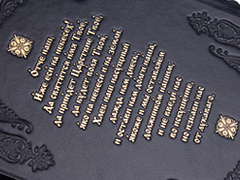 Отче наш,
Иже еси на небесех!
Да святится имя Твое,
да приидет Царствие Твое,
да будет воля Твоя,
яко на небеси и на земли.
Хлеб наш насущный
даждь нам днесь,
и остави нам долги наша,
якоже и мы оставляем
должником нашим,
и не введи нас
во искушение,
но избави нас
от лукаваго.